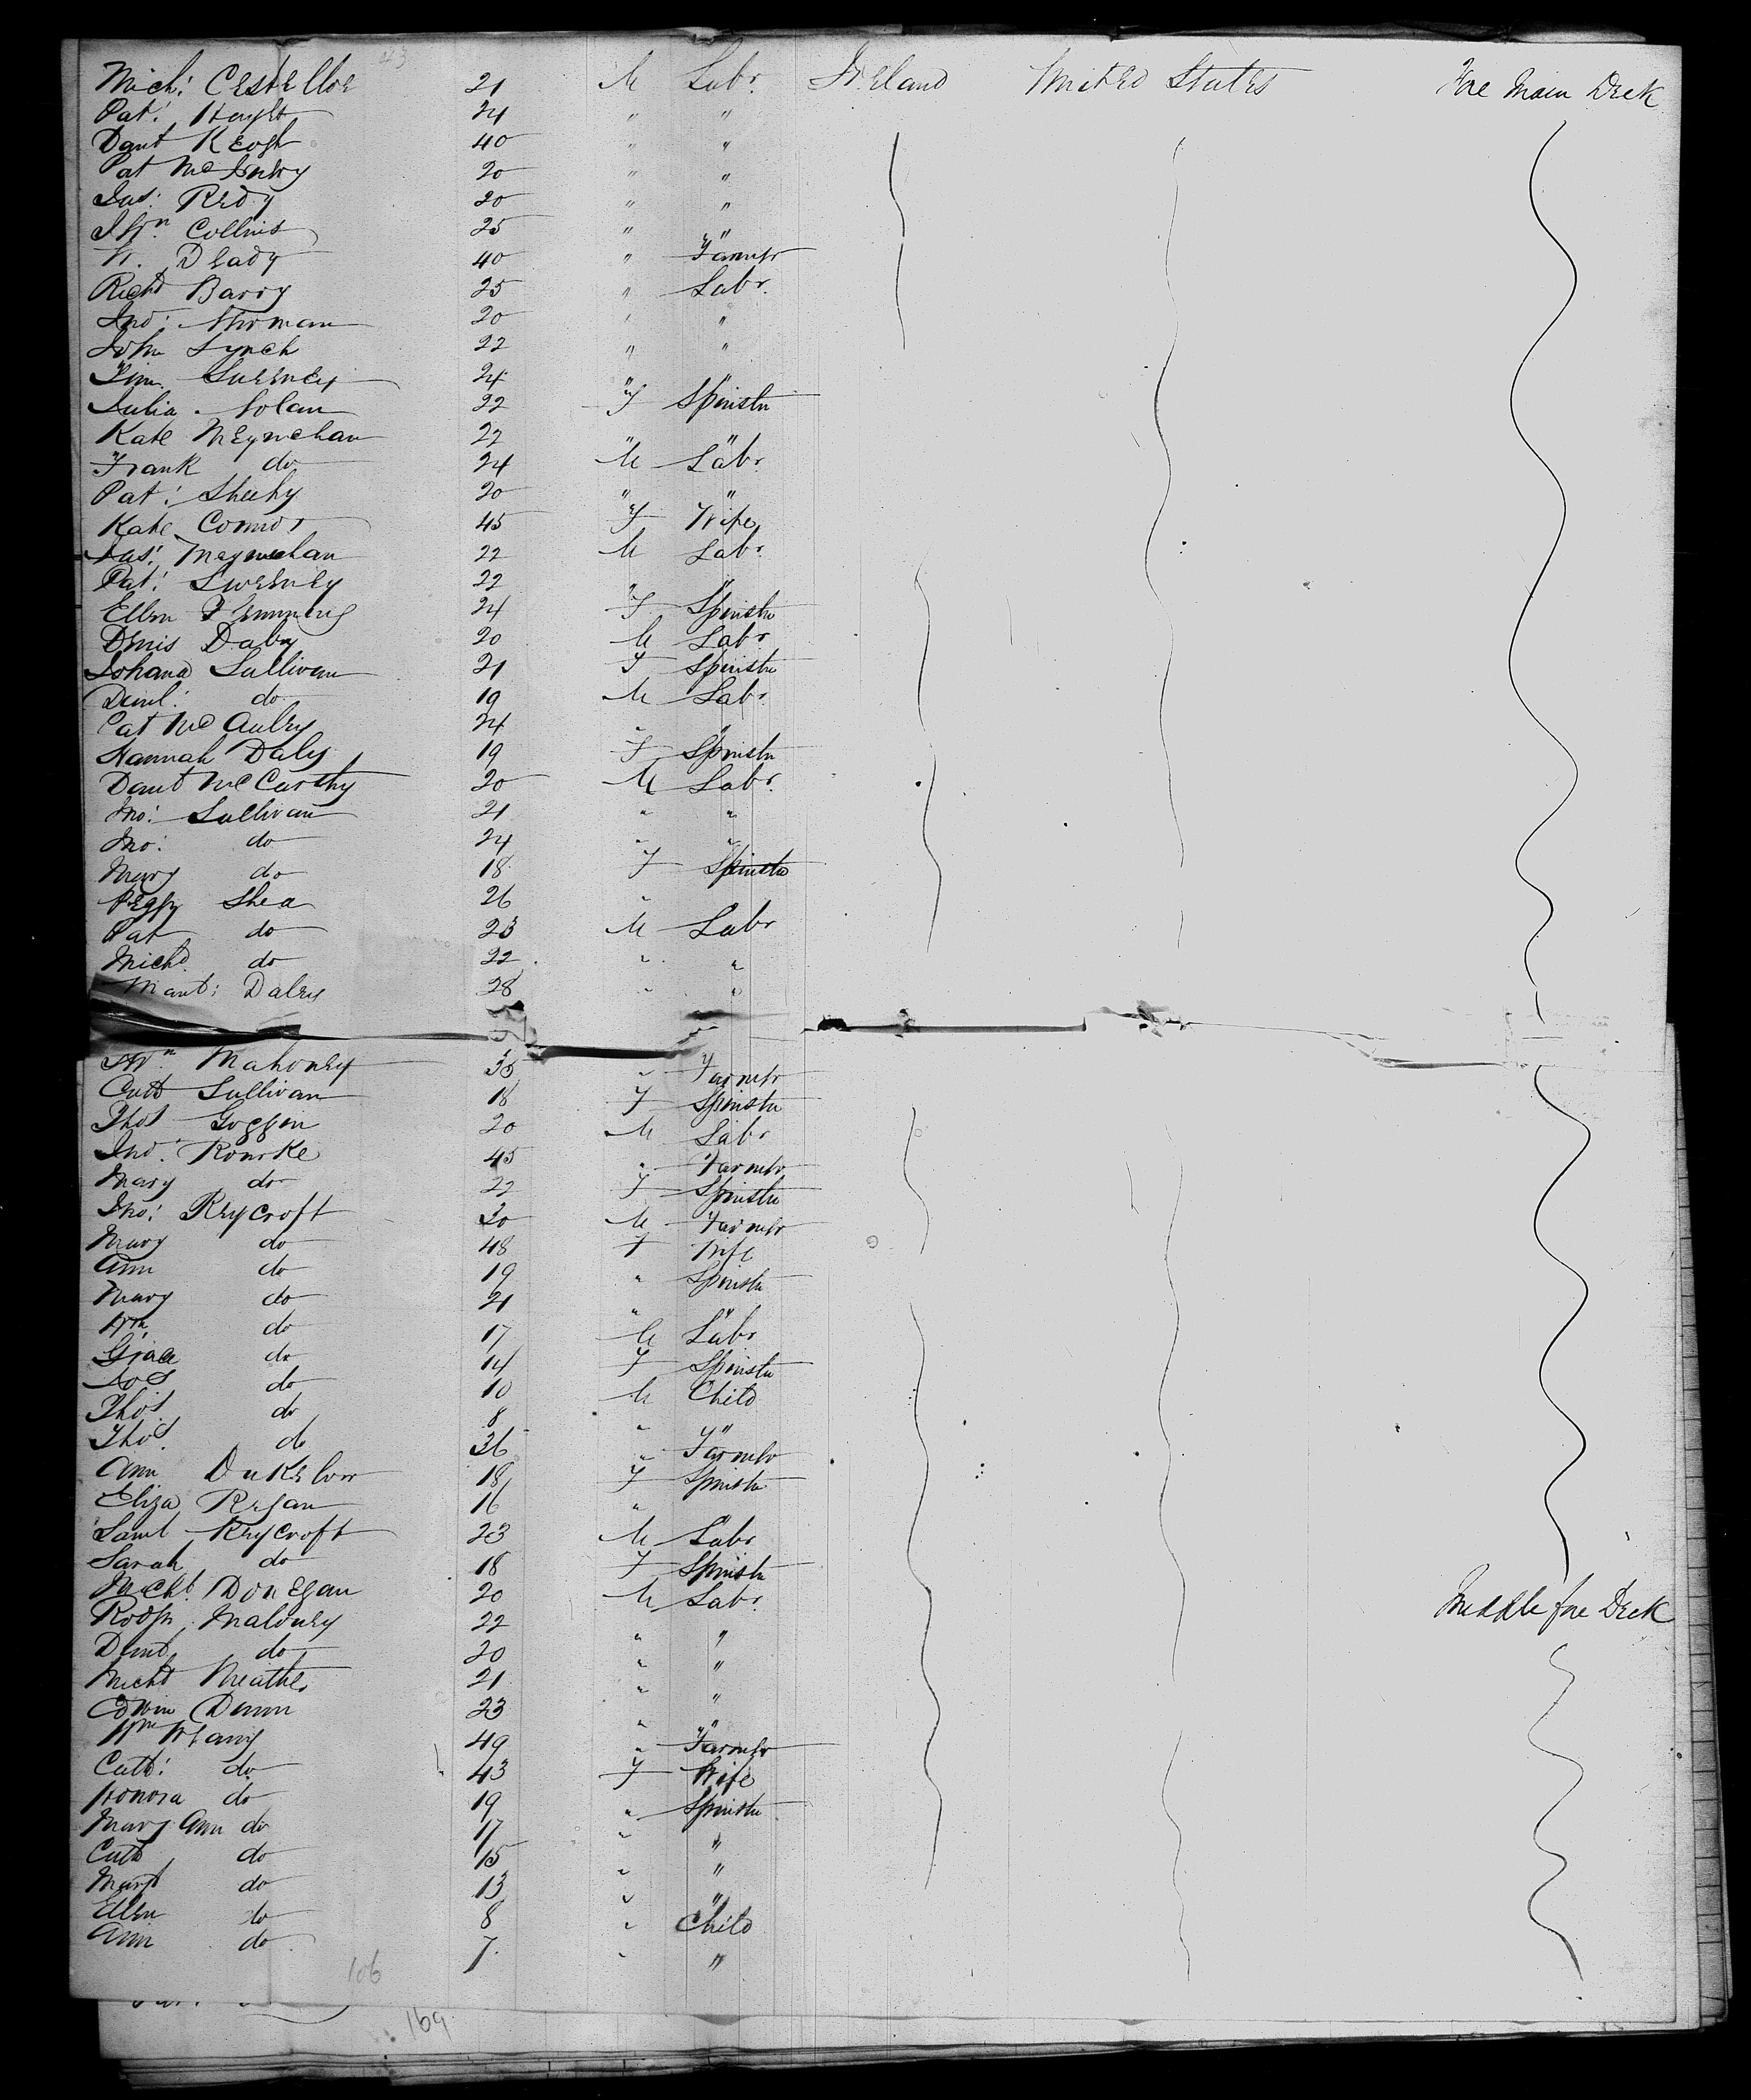 43
Mich: Costelloe 21 M Labr. Ireland United States Fore Main Deck
Pat: 24 " "
Danl Keogh 40 " "
Pat 20 " "
Jas: Redy 20 " "
Collins 25 " "
40 " Farmer
Richd Barry 25 " Labr.
Jno: 20 " "
John Lynch 22 " "
Tim. Sweeney 24 " "
Julia Nolan 22 F Spinster
Kate Meynehan 22 " "
Frank do 24 M Labr.
Pat: Sheehy 20 " "
Kate Connor 45 F Wife
Jas: Meynehan 22 M Labr.
Pat: Sweeney 22 " "
Ellen Flemming 24 F Spinster
Denis Daly 20 M Labr
Johana Sullivan 21 F Spinster
Danl: do 19 M Labr.
Pat McAuley 24 " "
Hannah Daley 19 F Spinster
Danl McCarthy 20 M Labr.
Jno: Sullivan 21 " "
Jno: do 24 " "
Mary do 18 F Spinster
Peggy Shea 26 "
Pat do 23 M Labr
Michl do 22 " "
Daley 28 " "
Wm Mahoney 35 " Farmer
Cath Sullivan 18 F Spinster
Thos Goggin 20 M Labr
Jno: Rourke 45 " Farmer
Mary do 22 F Spinster
Jno: Reycroft 50 M Farmer
Mary do 48 F Wife
Ann do 19 " Spinster
Mary do 21 " "
Wm do 17 M Labr
Grace do 14 F Spinster
do 10 M Child
Thos do 8 " "
Thos. do 36 " Farmer
Ann Dukelow 18 F Spinster
Eliza Regan 16 " "
Saml Reycroft 23 M Labr
Sarah do 18 F Spinster
Michl. Donegan 20 M Labr. Middle fore Deck
Maloney 22 " "
do 20 " "
Michl 21 " "
Edwin Dunn 23 " "
Wm 49 " Farmer
Cath: do 43 F Wife
Honora do 19 " Spinster
Mary Ann do 17 " "
Cath do 15 " "
Margt do 13 " "
Ellen do 8 " Child
Ann do 7. " "
106
169